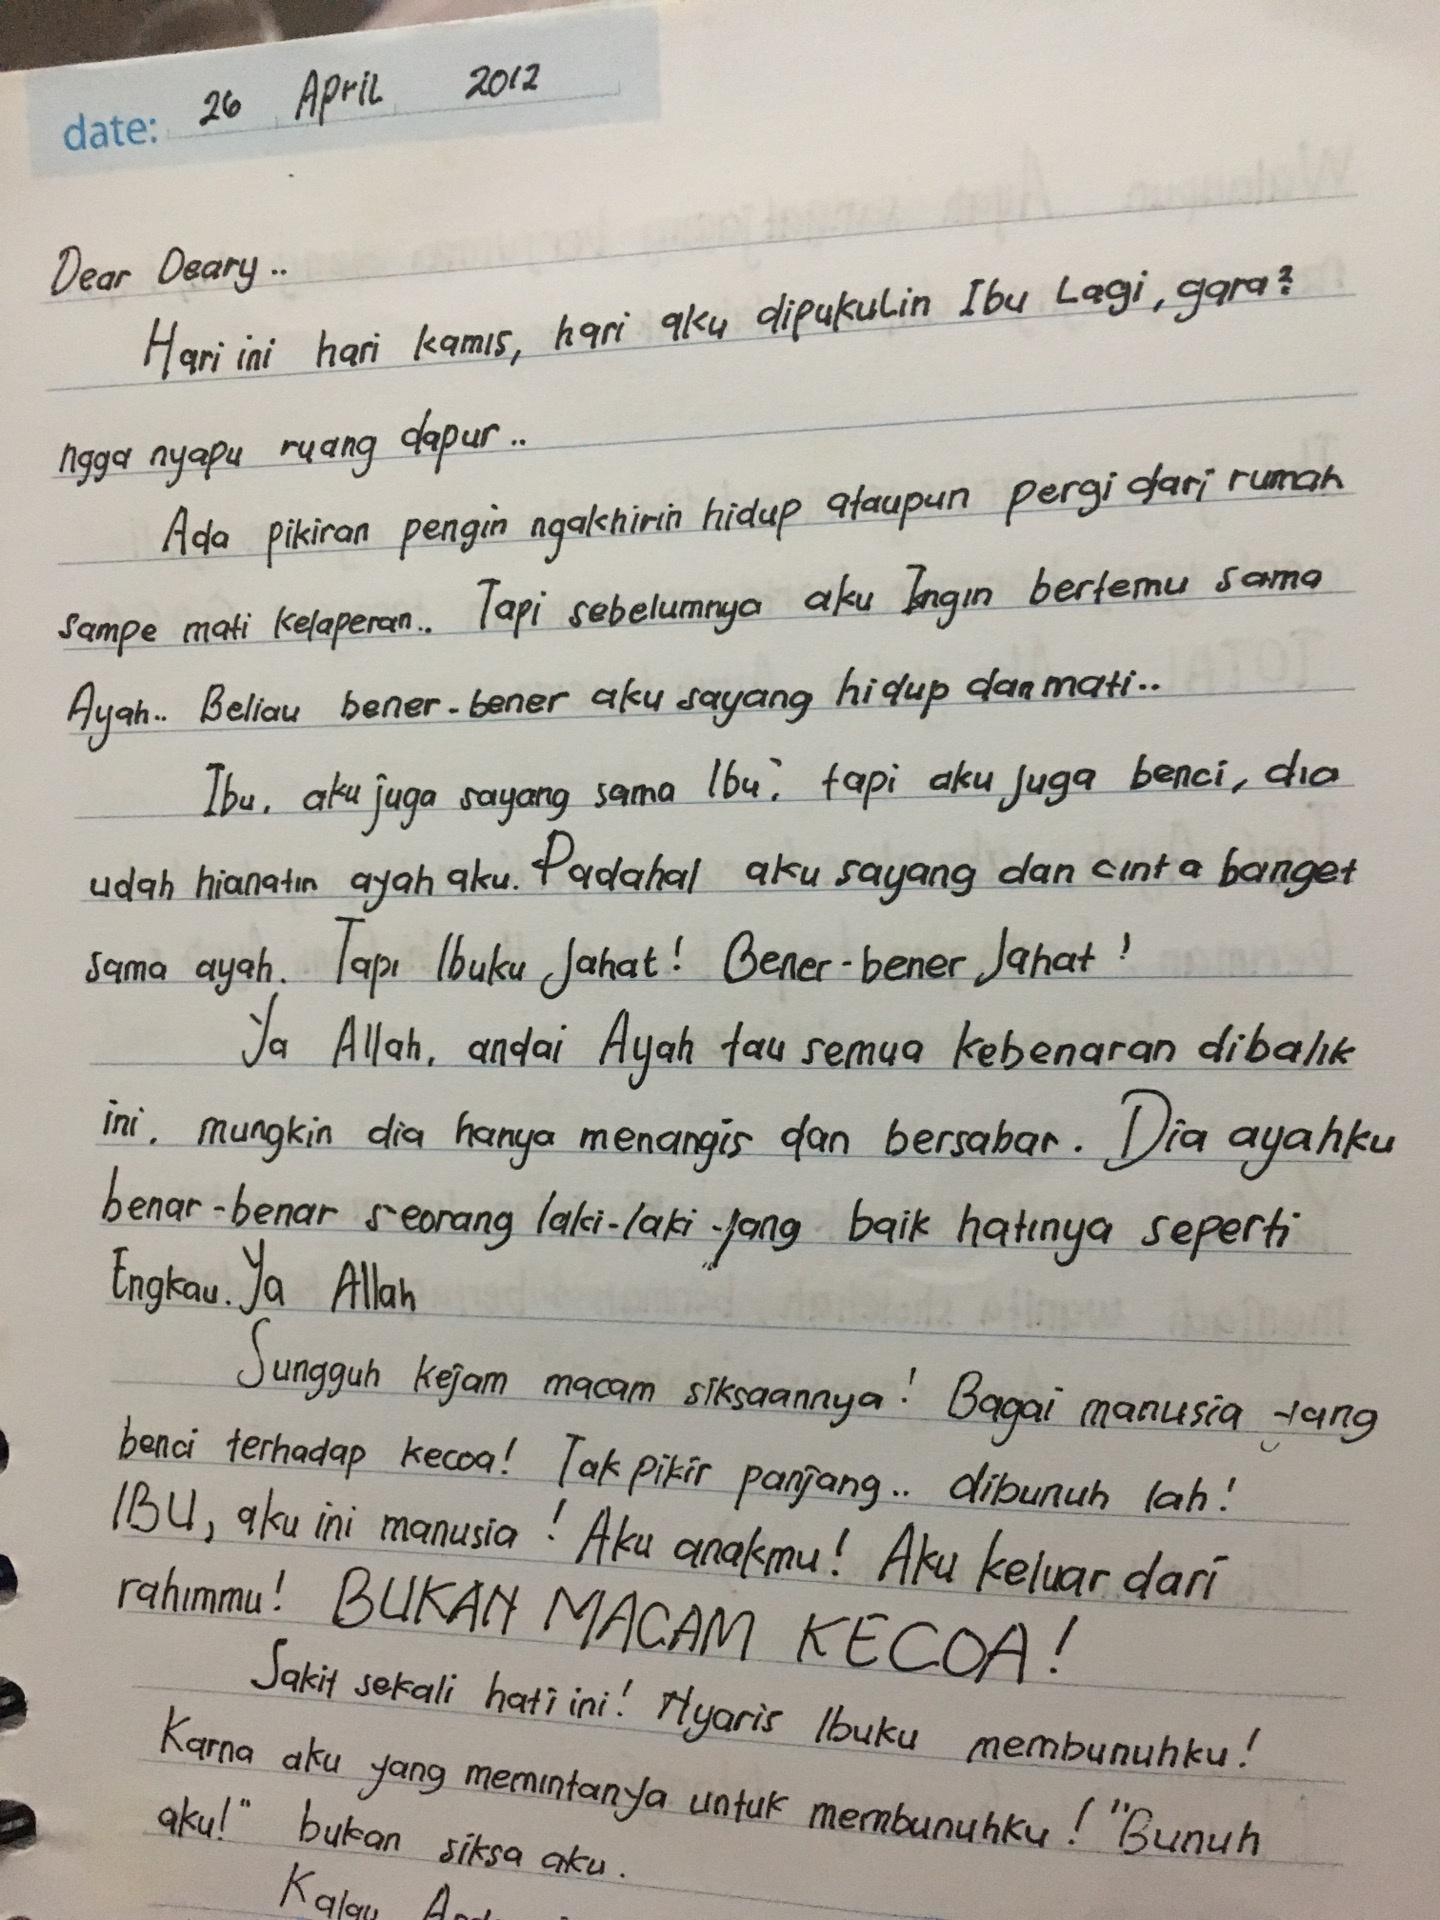 date: 26 April 2012
Dear Deary..
Hari ini hari kamis, hari aku dipukulin Ibu Lagi, gara²
ngga nyapu ruang dapur..
Ada pikiran pengin ngakhirin hidup ataupun pergi dari rumah
sampe mati kelaperan.. Tapi sebelumnya aku Ingin bertemu sama
Ayah.. Beliau bener-bener aku sayang hidup dan mati..
Ibu, aku juga sayang sama Ibu, tapi aku juga benci, dia
udah hianatin ayah aku. Padahal aku sayang dan cinta banget
sama ayah. Tapi Ibuku Jahat! Bener-bener Jahat!
Ya Allah, andai Ayah tau semua kebenaran dibalik
ini. mungkin dia hanya menangis dan bersabar. Dia ayahku
benar-benar seorang laki-laki yang baik hatinya seperti
Engkau. Ya Allah
Sungguh kejam macam siksaannya! Bagai manusia yang
benci terhadap kecoa! Tak pikir panjang.. dibunuh lah!
IBU, aku ini manusia! Aku anakmu! Aku keluar dari
rahimmu! BUKAN MACAM KECOA!
Sakit sekali hati ini! Nyaris Ibuku membunuhku!
Karna aku yang memintanya untuk membunuhku! "Bunuh
aku!" bukan siksa aku.
Kalau